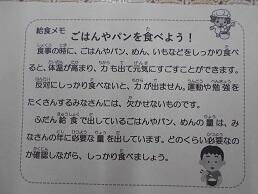 給食メモ
ごはんやパンを食べよう！
食事の時に、ごはんやパン、めん、いもなどをしっかり食べ
ると、体温が高まり、力も出て元気にすごすことができます。
反対にしっかり食べないと、力が出ません。運動や勉強を
たくさんするみなさんには、欠かせないものです。
ふだん給食で出しているごはんやパン、めんの量は、み
なさんの年に必要な量を出しています。どのくらい必要なの
か確認しながら、しっかり食べましょう。